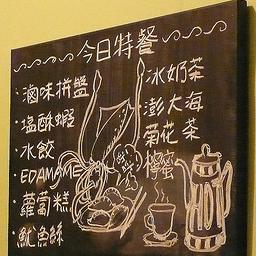 今日特餐
滷味拼盤
塩酥蝦
冰餃
EDAMAME
蘿蔔糕
魷魚絲
冰奶茶
澎大海
菊花茶
檸蜜